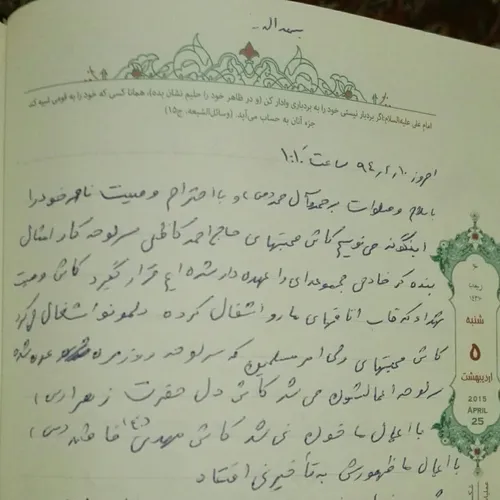 بسمه ال...
امام علی علیه‌السلام: اگر بردبار نیستی خود را به بردباری وادار کن (و در ظاهر خود را حلیم نشان بده)، همانا کسی که خود را به قومی شبیه کند
جزء آنان به حساب می‌آید. (وسائل‌الشیعه، ج۱۵)
امروز ساعت
با سلام و صلوات بر محمد و آل محمد (ص) و با احترام وصیت نامه خود را
اینگونه می نویسم کاش صحبتهای حاج احمد کاظمی سرلوحه کار امثال
بنده که خادمی مجموعه‌ای را عهده دار شده ایم قرار گیرد کاش وصیت
شهدا که قاب اتاقهای ما رو اشغال کرده دلمونو اشغال می کرد
کاش صحبتهای ولی امر مسلمین که سرلوحه روزمره شده
سرلوحه اعمالشون می شد کاش دل حضرت زهرا (س)
با اعمال ما خون نمی شد کاش مهدی فاطمه (س)
با اعمال ما ظهورش به تأخیر نمی افتاد
رجب
۱۴۳۶
شنبه
۵
اردیبهشت
2015
APRIL
25